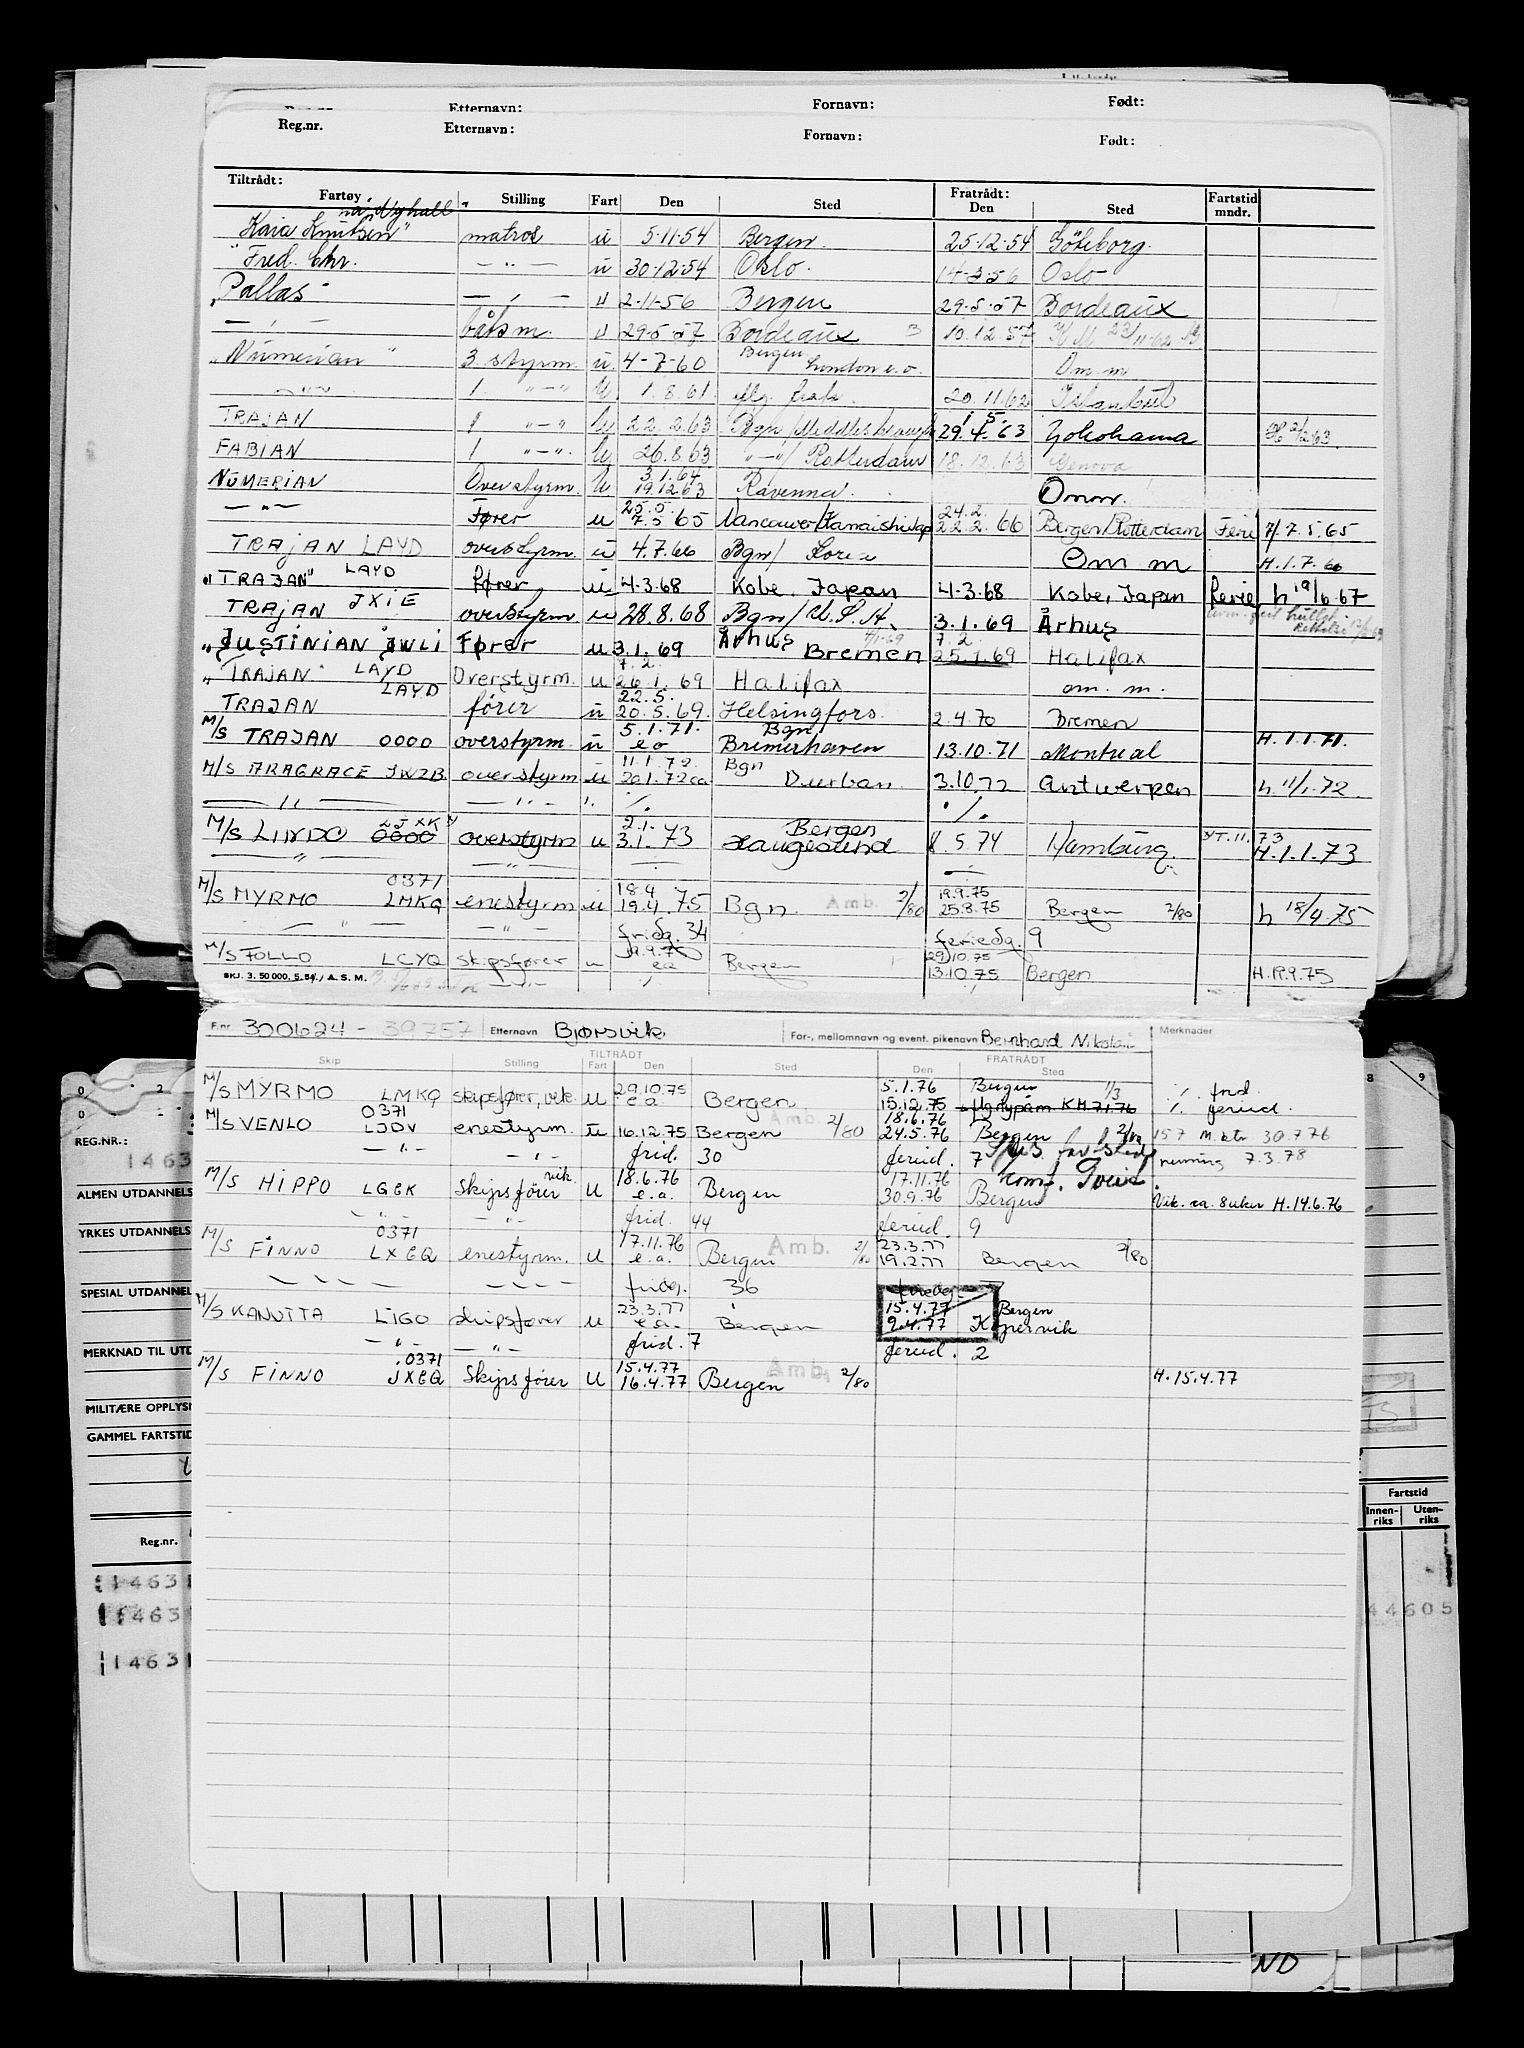 Etternavn: Fornavn: Født:
Reg.nr. Etternavn: Fornavn: Født:
Tiltrådt: Fratrådt: Fartstid
Fartøy Stilling Fart Den Sted Den Sted mndr.
Kaia Knutsen" matros u 5.11.54 Bergen. 25.12.54 Göteborg.
"Fred. Chr. — " — u 30.12.54 Oslo. 14-3-56 Oslo
"Pallas" — , — u 2-11-56 Bergen 29.5.57 Bordeaux
— , — båtsm. u 29.5.57 Bordeaux 10.12.57
"Numerian" 3 styrm. u. 4-7-60 Bergen London e.o. Om m
— " — 1. "—" u 1.8.61 20.11.62 Istanbul
TRAJAN 1 "—" u 22.2.63 Bgn/Middlesbrough 29.4.63 Yokohama H 2/2.63
FABIAN 1 "—". u 26.8.63 "—"/ Rotterdam 18.12.63 Genova
NUMERIAN Overstyrm. u 3.1.64 19.12.63 Ravenna. Omm.
— " — Fører u 25.5. 7.5 65 24.2. 22.2. 66 Bergen/Rotterdam Ferie H/7.5.65
TRAJAN LAYD overstyrm. u 4.7.66 Bgn/ Korea Om m H.1.7.66
"TRAJAN" LAYD fører u 4.3.68 Kobe, Japan 4.3.68 Kobe, Japan Ferie h 19/6.67
TRAJAN JXIE overstyrm u 28.8.68 Bgn/ U.S.A. 3.1.69 Århus
"JUSTINIAN JWLI Fører u 3.1.69 Århus Bremen 7.2. 25.1.69 Halifax
"TRAJAN" LAYD Overstyrm. u 7.2. 26.1.69 Halifax om. m.
TRAJAN LAYD fører u 22.5. 20.5.69. Helsingfors. 2.4.70 Bremen
M/S TRAJAN 0000 overstyrm. u 5.1.71. eo Bgn Bremerhaven 13.10.71 Montreal H.1.1.71.
M/S ARAGRACE JWZB overstyrm u 11.1.72. 20.1.72 ca Bgn Durban. 3.10.72 Antwerpen h 11/1.72.
— " — — " —
M/S LINDO 0000 LJXK overstyrm u 2.1. 3.1.73 Bergen Haugesund 8.5.74 Hamburg. H.1.1.73
— " — — " —
M/S MYRMO 0371 LMKQ enestyrm u 18.4 19.4 75 Bgn. Amb. 2/80 19.9.75 25.8.75 Bergen 2/80 h 18/4.75
— " — — " — fridg. 34 feriedg. 9
M/S FOLLO LCYQ skipsfører u 19.9.75 ea Bergen 29.10.75 13.10.75 Bergen H.19.9.75
SKJ. 3. 50 000. 5.54. A. S. M.
F.nr 300624-39757 Etternavn Bjørsvik For-, mellomnavn og event. pikenavn Bernhard Nikolai Merknader
TILTRÅDT FRATRÅDT
Skip Stilling Fart Den Sted Den Sted
M/S MYRMO LMKQ skipsfører, vik. u 29.10.75 e.a. Bergen 5.1.76 15.12.75 Bergen 1/3 ferid.
M/S VENLO 0371 LJDV enestyrm. u 16.12.75 Bergen Amb. 2/80 18.6.76 24.5.76 Bergen 2/80 157 M.btr 30.7.76
— " — — " — frid. 30 ferid. 7 7.3.78
M/S HIPPO LGEK Skipsfører vik. u 18.6.76 e.a. Bergen 17.11.76 30.9.76 Bergen Vik. ca. 8 uker H.14.6.76
— " — — " — frid. 44 ferid. 9
M/S FINNO 0371 LXEQ enestyrm. u 17.11.76 e.a. Bergen Amb. 2/80 23.3.77 19.2.77 Bergen 2/80
fridg. 36 feriedg.
M/S KANUTTA LIGO skipsfører u 23.3.77 e.a. Bergen 15.4.77 9.4.77 Bergen Kopervik
— " — — " — frid. 7 ferid. 2
M/S FINNO .0371 JXEQ Skipsfører u 15.4.77 16.4.77 Bergen Amb. 2/80 H.15.4.77
REG.NR.:
1463
ALMEN UTDANNELS
YRKES UTDANNELS
SPESIAL UTDANNEL
MERKNAD TIL UTD
MILITÆRE OPPLYSN
GAMMEL FARTSTID
Reg.nr.
1463
1463
1463
Fartstid
Innenriks Utenriks
44605
ND